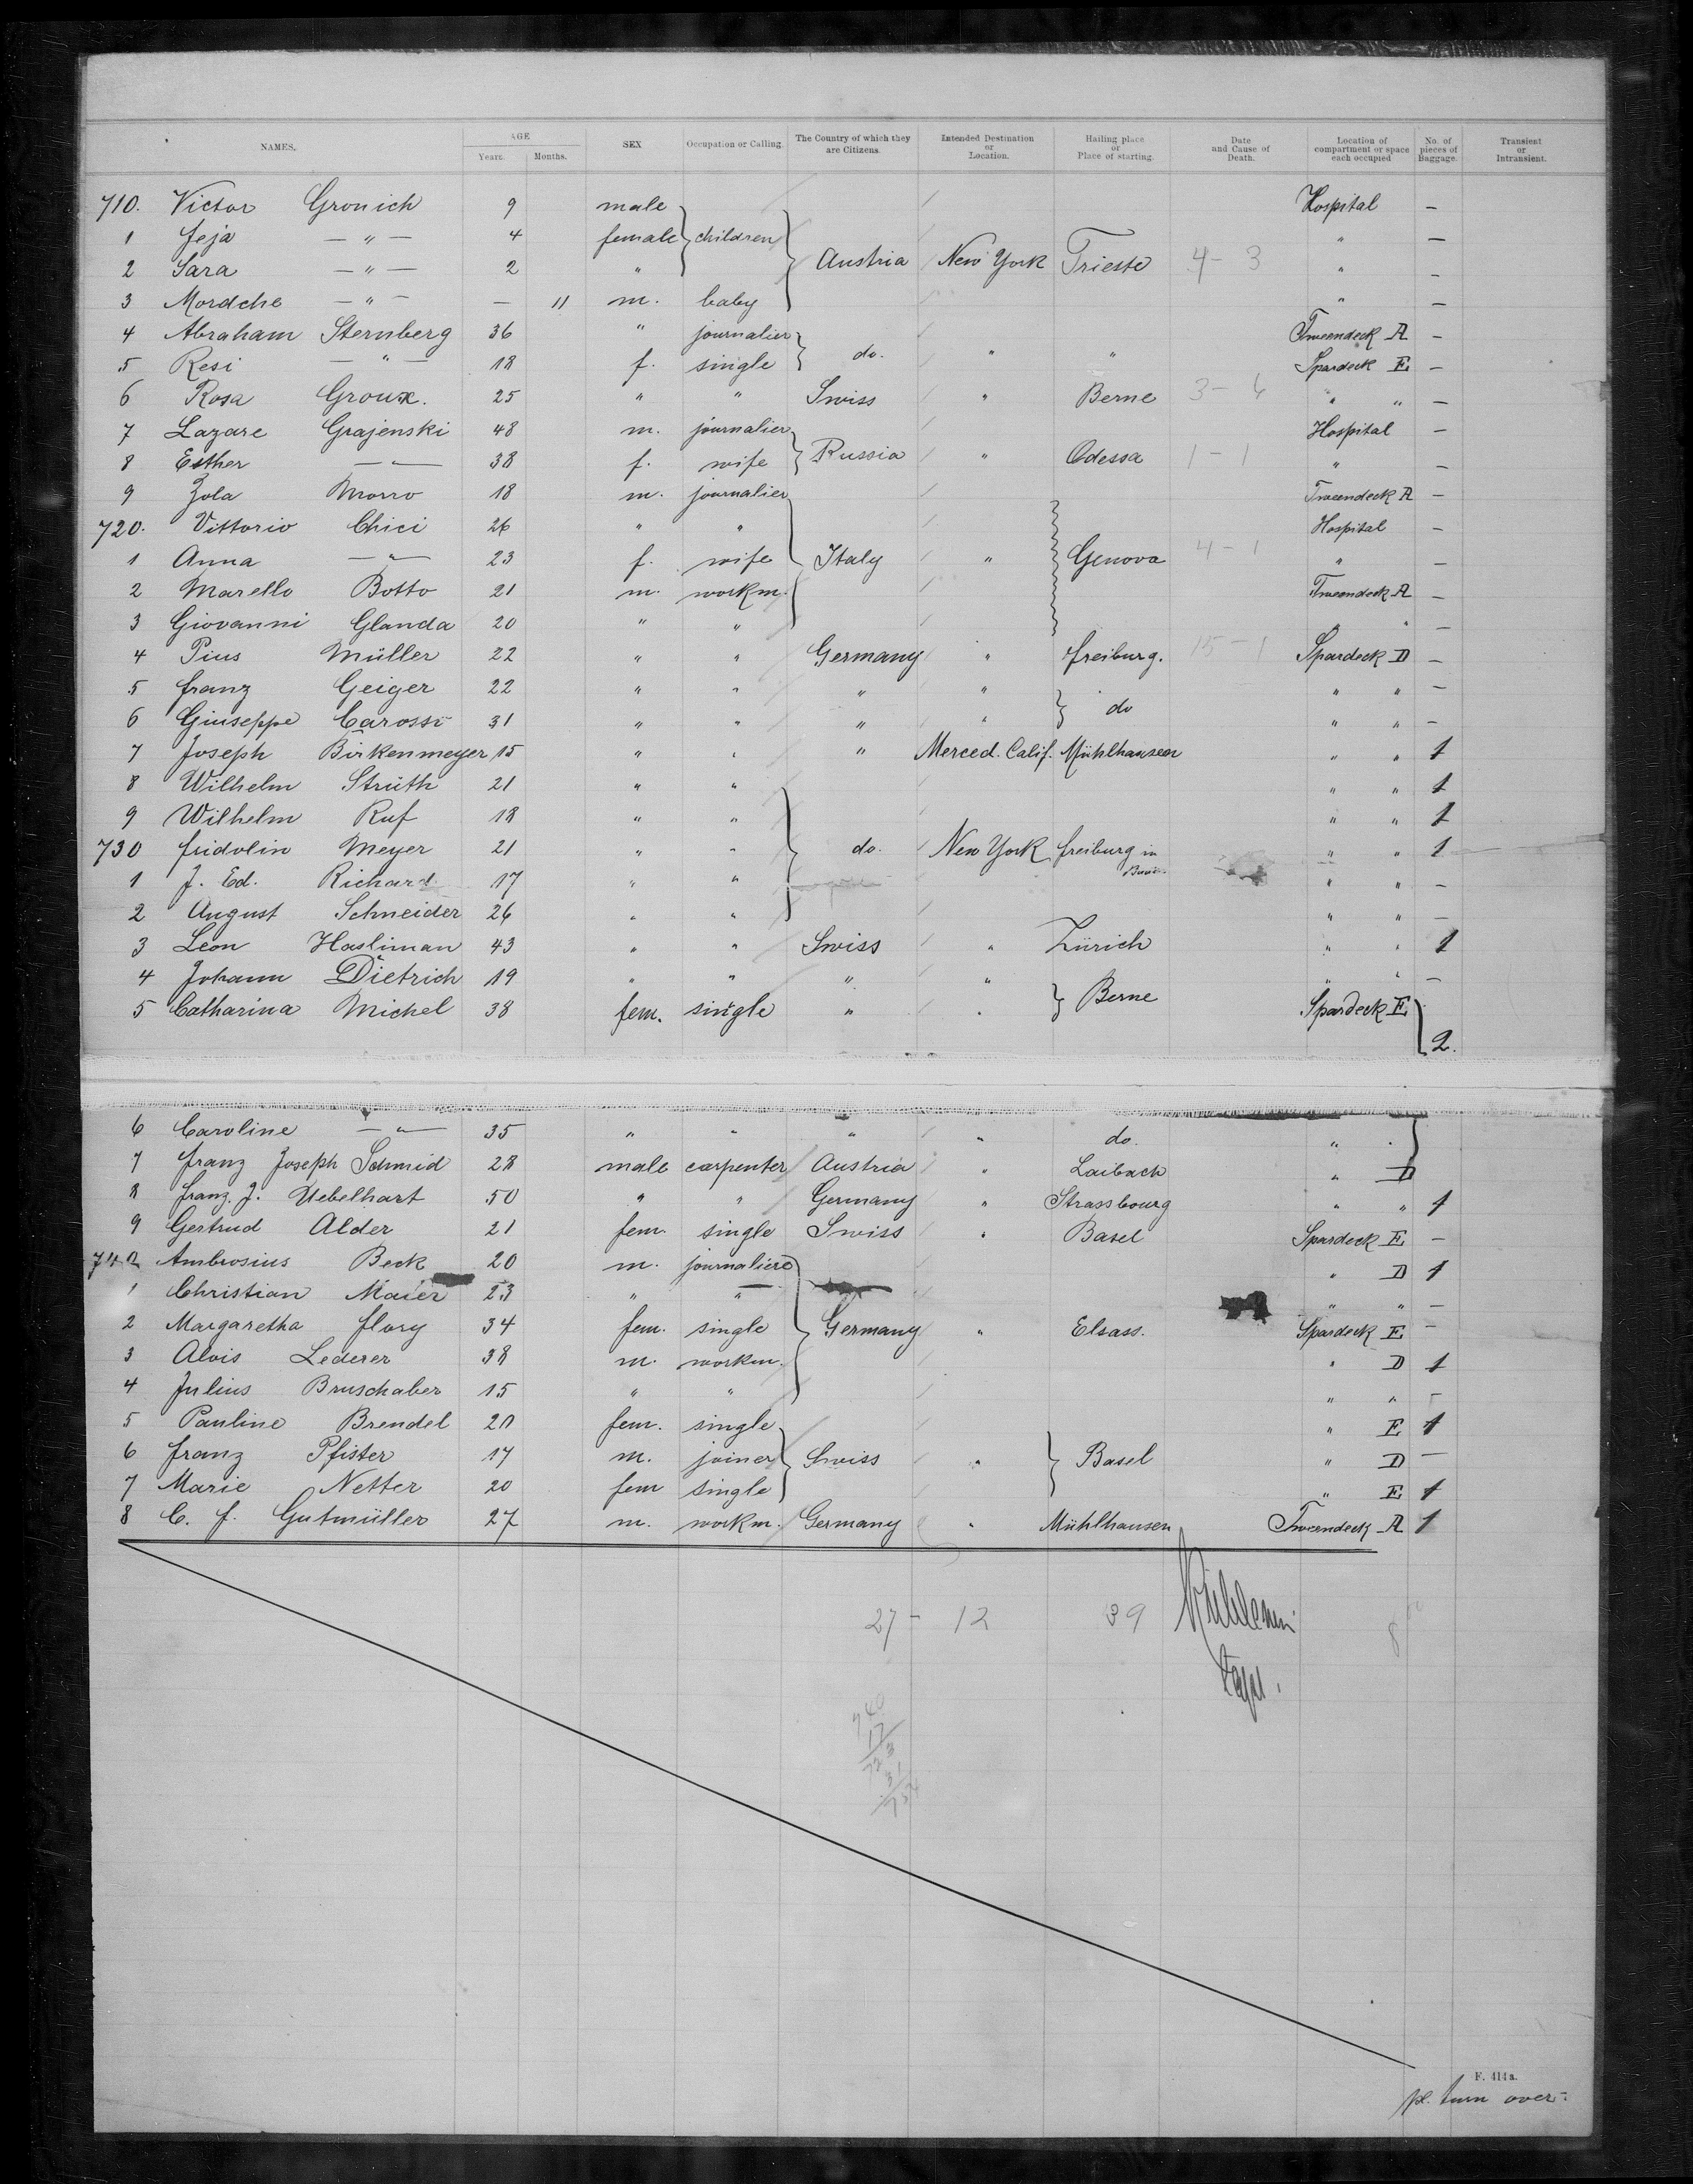 NAMES. AGE Years. Months. SEX Occupation or Calling. The Country of which they are Citizens. Intended Destination or Location. Hailing place or Place of starting. Date and Cause of Death. Location of compartment or space each occupied No. of pieces of Baggage. Transient or Intransient.
710. Victor Gronich 9 male Hospital —
1 Feja — " — 4 female children " —
2 Sara — " — 2 " Austria New York Trieste 4 - 3 " —
3 Mordche — " — — 11 m. baby " —
4 Abraham Sternberg 36 " journalier Tweendeck A —
5 Resi — " — 18 f. single do. " " Spardeck E —
6 Rosa Groux. 25 " " Swiss " Berne 3 - 6 " " —
7 Lazare Grajenski 48 m. journalier Hospital —
8 Esther — " — 38 f. wife Russia " Odessa 1 - 1 " —
9 Zola Morro 18 m. journalier Tweendeck A —
720. Vittorio Chici 26 " " Hospital —
1 Anna — " — 23 f. wife Italy " Genova 4 - 1 " —
2 Marello Botto 21 m. workm. Tweendeck A —
3 Giovanni Glanda 20 " " " —
4 Pius Müller 22 " " Germany " Freiburg. 15 - 1 Spardeck D —
5 Franz Geiger 22 " " " " " " —
6 Giuseppe Carossi 31 " " " " do " " —
7 Joseph Birkenmeyer 15 " " " Merced. Calif. Mühlhausen " " 1
8 Wilhelm Strüth 21 " " " " 1
9 Wilhelm Ruf 18 " " " " 1
730 Fridolin Meyer 21 " " do. New York Freiburg in " " 1
1 J. Ed. Richard 17 " " " " —
2 August Schneider 26 " " " " —
3 Leon Hasliman 43 " " Swiss " Zürich " " 1
4 Johann Dietrich 19 " " " " " " —
5 Catharina Michel 38 fem. single " " Berne Spardeck E
2.
6 Caroline — " — 35 " " " " do. " "
7 Franz Joseph Schmid 28 male carpenter Austria " Laibach " D
8 Franz. J. Uebelhart 50 " " Germany " Strassbourg " " 1
9 Gertrud Alder 21 fem. single Swiss " Basel Spardeck E —
740 Ambrosius Beck 20 m. journalier " D 1
1 Christian Maier 23 " " " " —
2 Margaretha Flory 34 fem. single Germany " Elsass. Spardeck E —
3 Alois Lederer 38 m. workm. " D 1
4 Julius Bruschaber 15 " " " " —
5 Pauline Brendel 20 fem. single " E 1
6 Franz Pfister 17 m. joiner Swiss " Basel " D —
7 Marie Netter 20 fem single " E 1
8 C. F. Gutmüller 27 m. workm. Germany " Mühlhausen Tweendeck A 1
27 - 12 39
17
723
31
F. 414a.
pl. turn over.